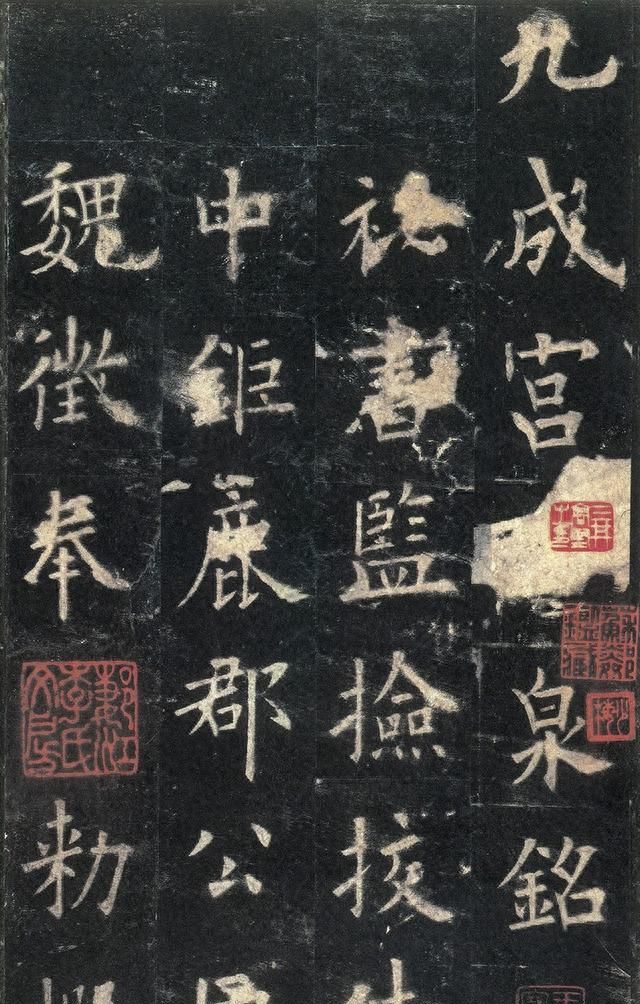 九成宮泉銘
祕書監撿挍
中鉅鹿郡公
魏徵奉勑